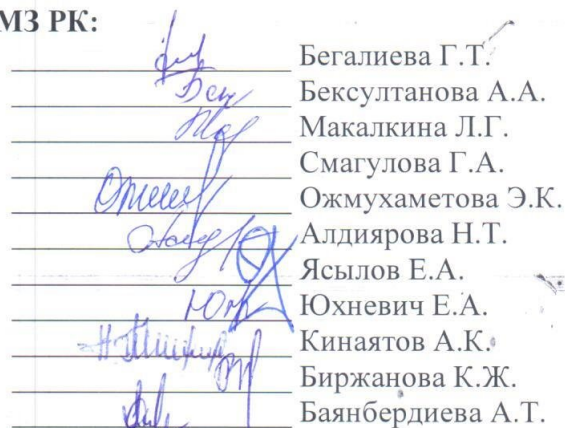 МЗ РК:
Бегалиева Г.Т.
Бексултанова А.А.
Макалкина Л.Г.
Смагулова Г.А.
Ожмухаметова Э.К.
Алдиярова Н.Т.
Ясылов Е.А.
Юхневич Е.А.
Кинаятов А.К.
Биржанова К.Ж.
Баянбердиева А.Т.